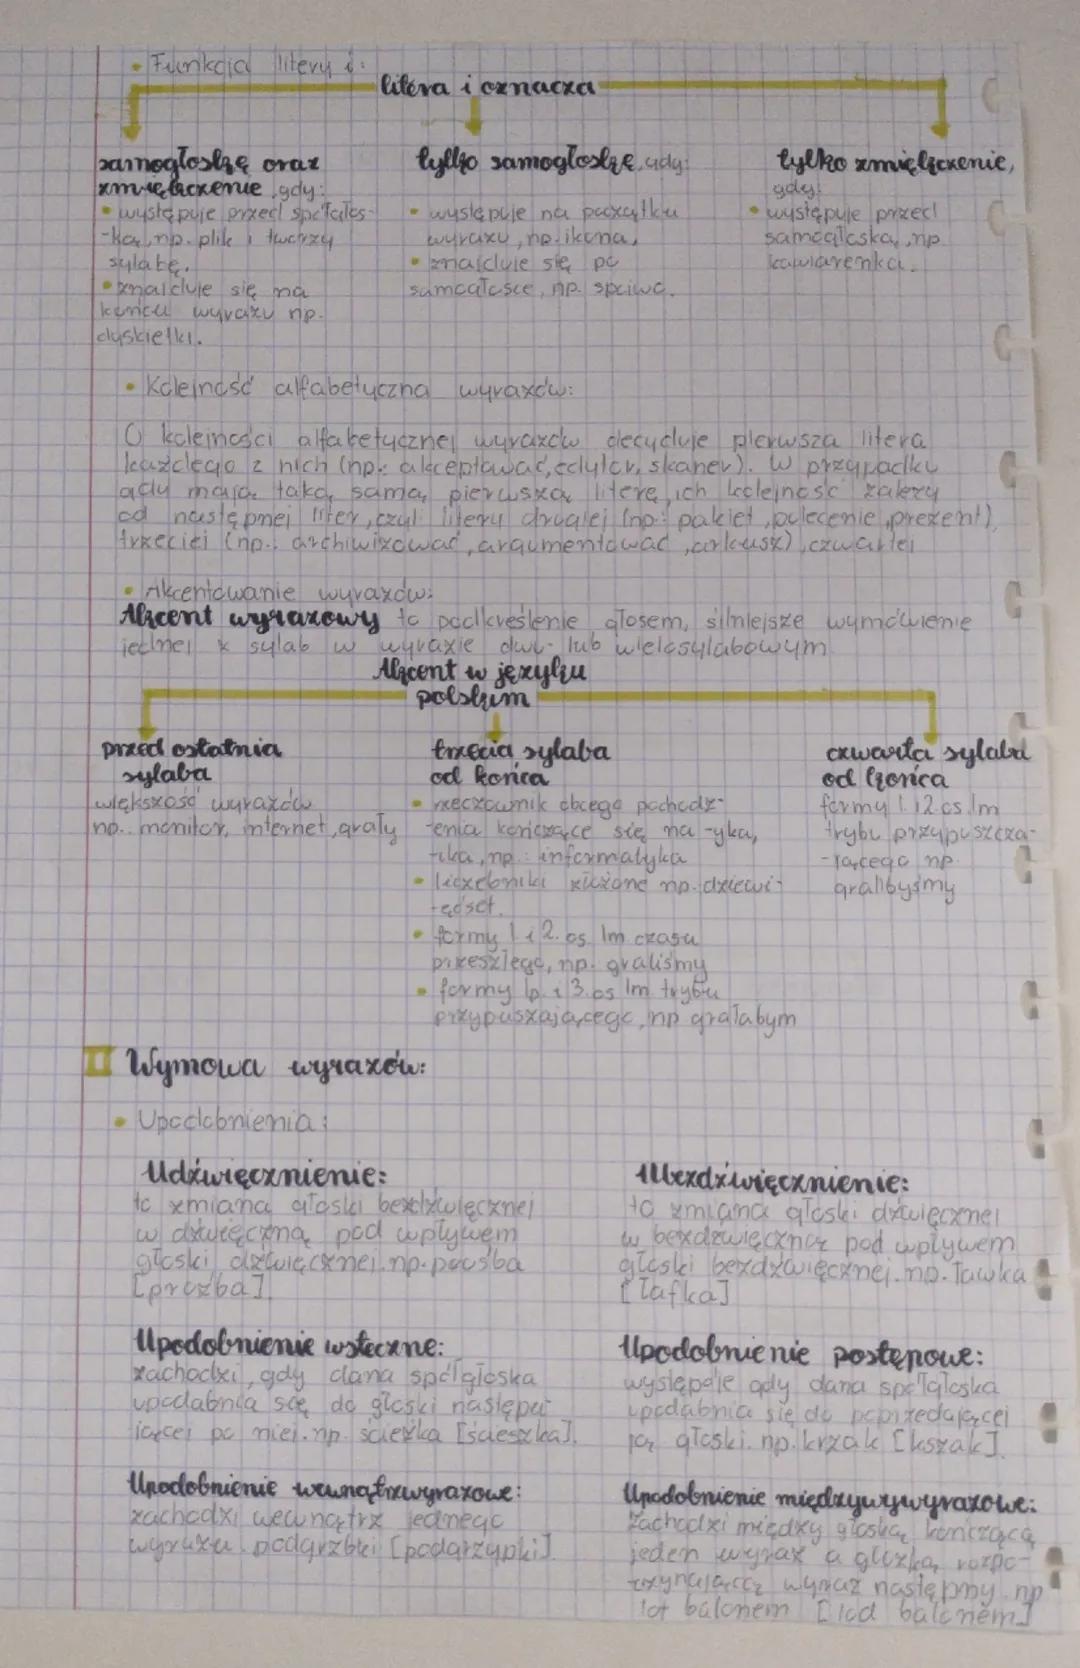 • Funkcja litery i:
litera i oznacza
samogłoskę oraz
zmiękczenie, gdy:
• występuje przed spółgłos-
-ką, np. plik i tworzy
sylabę.
• znajduje się na
końcu wyrazu np.
dyskietki.
tylko samogłoskę, gdy:
• występuje na początku
wyrazu, np. ikona,
• znajduje się po
samogłosce, np. spoiwo.
tylko zmiękczenie,
gdy:
• występuje przed
samogłoską, np
kawiarenka.
• Kolejność alfabetyczna wyrazów:
O kolejności alfabetycznej wyrazów decyduje pierwsza litera
każdego z nich (np.: akceptować, edytor, skaner). W przypadku
gdy mają taką samą pierwszą literę, ich kolejność zależy
od następnej liter, czyli litery drugiej (np.: pakiet, polecenie, prezent),
trzeciej (np.: archiwizować, argumentować, arkusz), czwartej
• Akcentowanie wyrazów:
Akcent wyrazowy to podkreślenie głosem, silniejsze wymówienie
jednej z sylab w wyrazie dwu- lub wielosylabowym
Akcent w języku
polskim
przed ostatnia
sylaba
większość wyrazów
np.: monitor, internet, grały
trzecia sylaba
od końca
• rzeczownik obcego pochodz-
-enia kończące się na -yka,
-ika, np.: informatyka
• liczebniki złożone np. dziewi-
-ęćset.
• formy 1 i 2. os. lm czasu
przeszłego, np. graliśmy
• formy lp. i 3. os lm trybu
przypuszającego, np grałabym
czwarta sylaba
od końca
formy 1. i 2 os. lm
trybu przypuszcza-
-jącego np.
gralibyśmy
II Wymowa wyrazów:
• Upodobnienia:
Udźwięcznienie:
to zmiana głoski bezdźwięcznej
w dźwięczną pod wpływem
głoski dźwięcznej. np. prośba
[proźba].
Ubezdźwięcznienie:
to zmiana głoski dźwięcznej
w bezdźwięczną pod wpływem
głoski bezdźwięcznej. np. ławka
[łafka]
Upodobnienie wsteczne:
zachodzi, gdy dana spółgłoska
upodabnia się do głoski następu-
jącej po niej. np. ścieżka [ścieszka].
Upodobnienie postępowe:
występuje gdy dana spółgłoska
upodabnia się do poprzedającej
ją głoski. np. krzak [kszak].
Upodobnienie wewnątrzwyrazowe:
zachodzi wewnątrz jednego
wyrazu. podgrzbki [podgrzypki].
Upodobnienie międzywywyrazowe:
Zachodzi między głoską kończącą
jeden wyraz a głozką rozpo-
-czynającą wyraz następny. np
lot balonem [lod balonem]